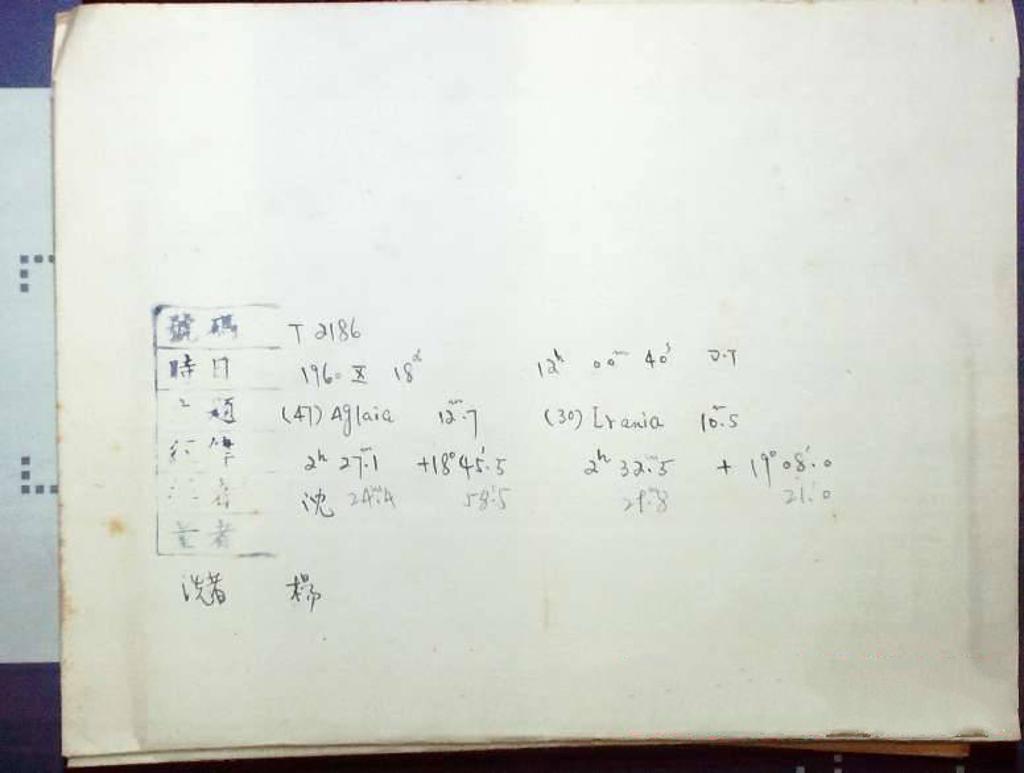 號碼 T 2186
時日 1960 X 18ᵈ 12ʰ 00ᵐ 40ˢ U.T
題 (47) Aglaia 12ᵐ.7 (30) Urania 10ᵐ.5
2ʰ 27ᵐ.1 +18°45′.5 2ʰ 32ᵐ.5 + 19°08′.0
者 沈 24ᵐ.4 58′.5 29ᵐ.8 21′.0
量者
洗者 楊